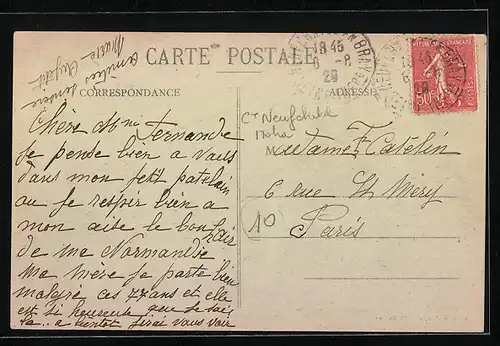 CARTE POSTALE
CORRESPONDANCE
ADRESSE
Chère Mme Fernande
je pense bien a vous
dans mon petit patelin
ou je respir bien a
mon aise le bon air
de ma Normandie
Ma mère se porte bien
malgré ces 7x ans et elle
est si heureuse que je sois
la.. a bientot j'irai vous voir
amitiés
Marie
Madame F Catelin
6 rue St Méry
Paris
10
18 45
6 - 8
29
50